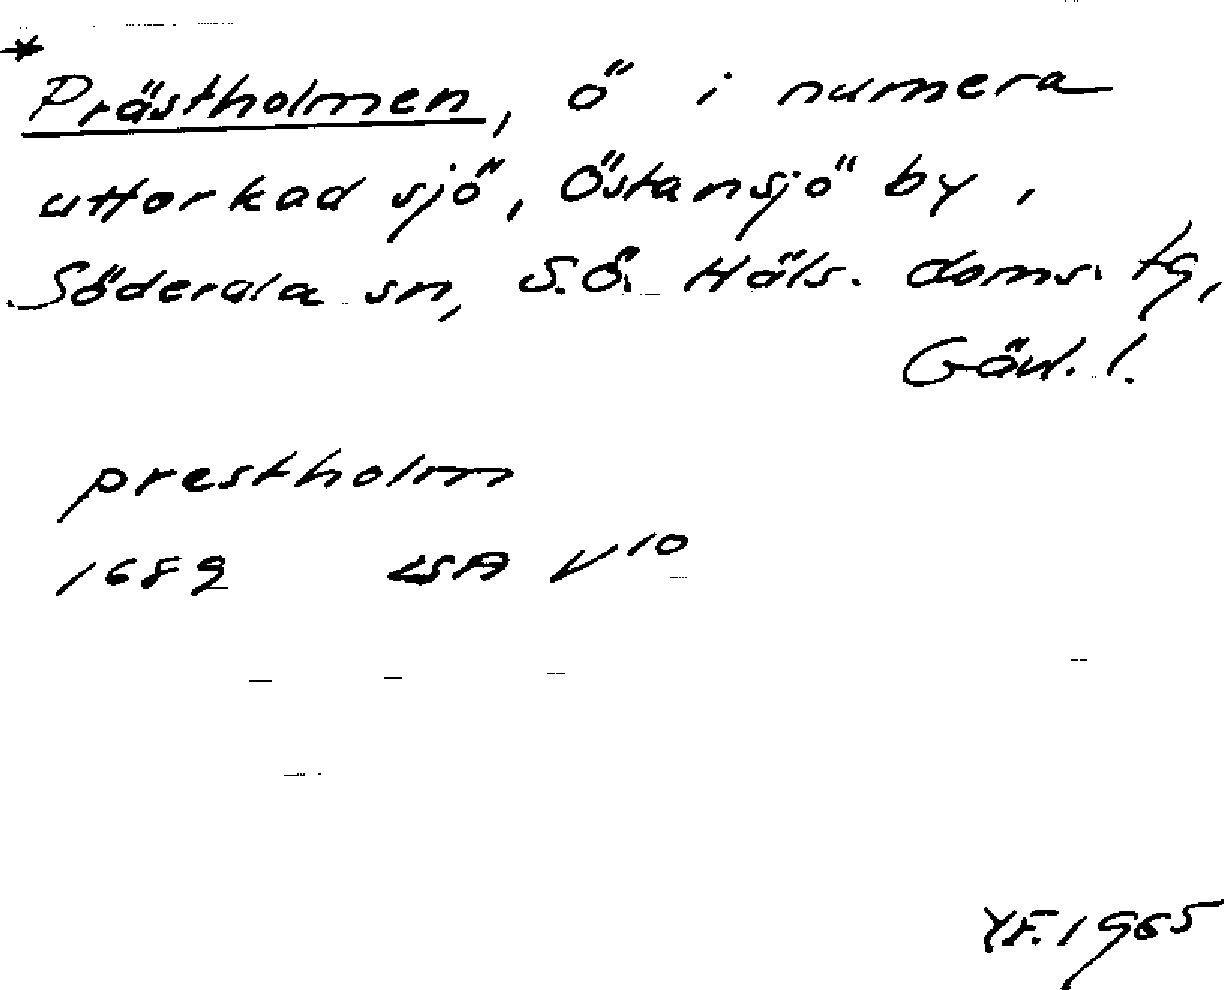 * Prästholmen, ö i numera
uttorkad sjö, Östansjö by,
Söderala sn, S.Ö. Häls. doms. tg,
Gävl. l.
prestholm
1689 LSA V10
Y F. 1965